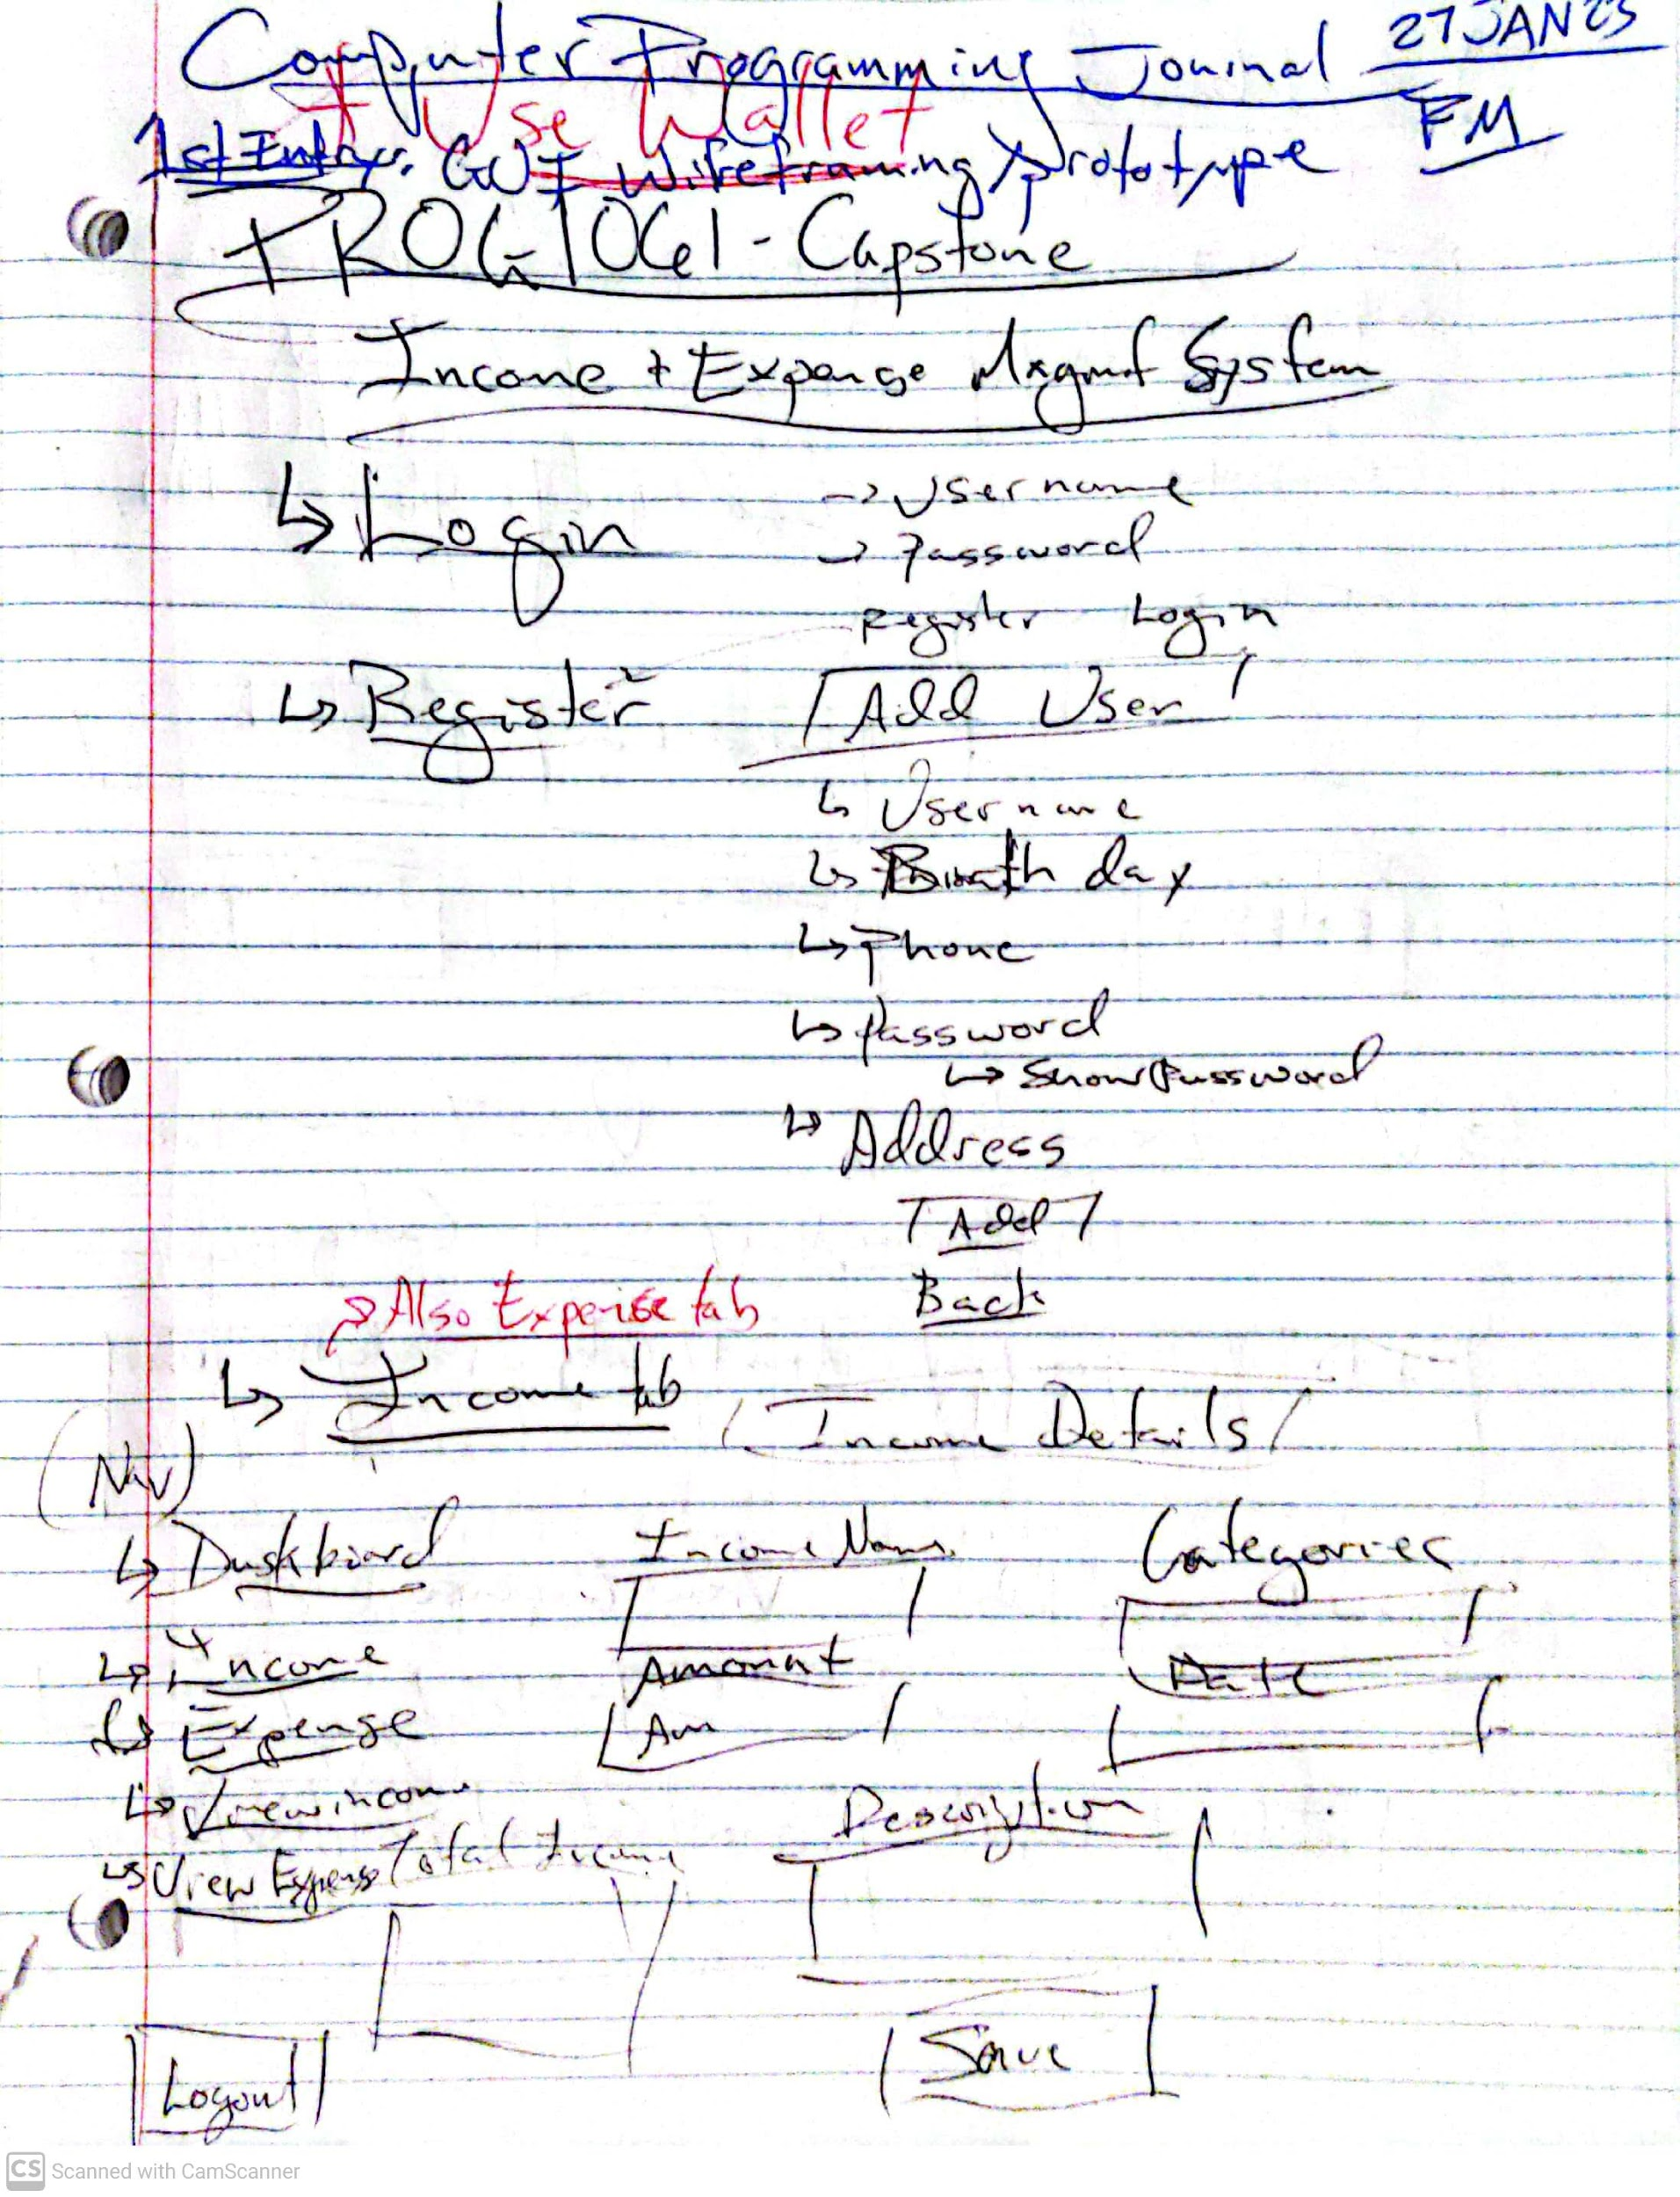 Computer Programming Journal 27JAN25
FM
Use Wallet
1st Entry: GUI Wireframing Prototype
PROG1061 - Capstone
Income + Expense Mngmt System
↳ Login → Username
→ Password
Register Login
↳ Register Add User
↳ Username
↳ Birthday
↳ Phone
↳ Password
↳ Show Password
↳ Address
Add
Back
Also Expense tab
↳ Income tab Income Details
(Nav)
↳ Dashboard Income Name Categories
↳ Income Amount Date
↳ Expense Am
↳ View income Description
↳ View Expense Total Income
Logout Save
CS Scanned with CamScanner